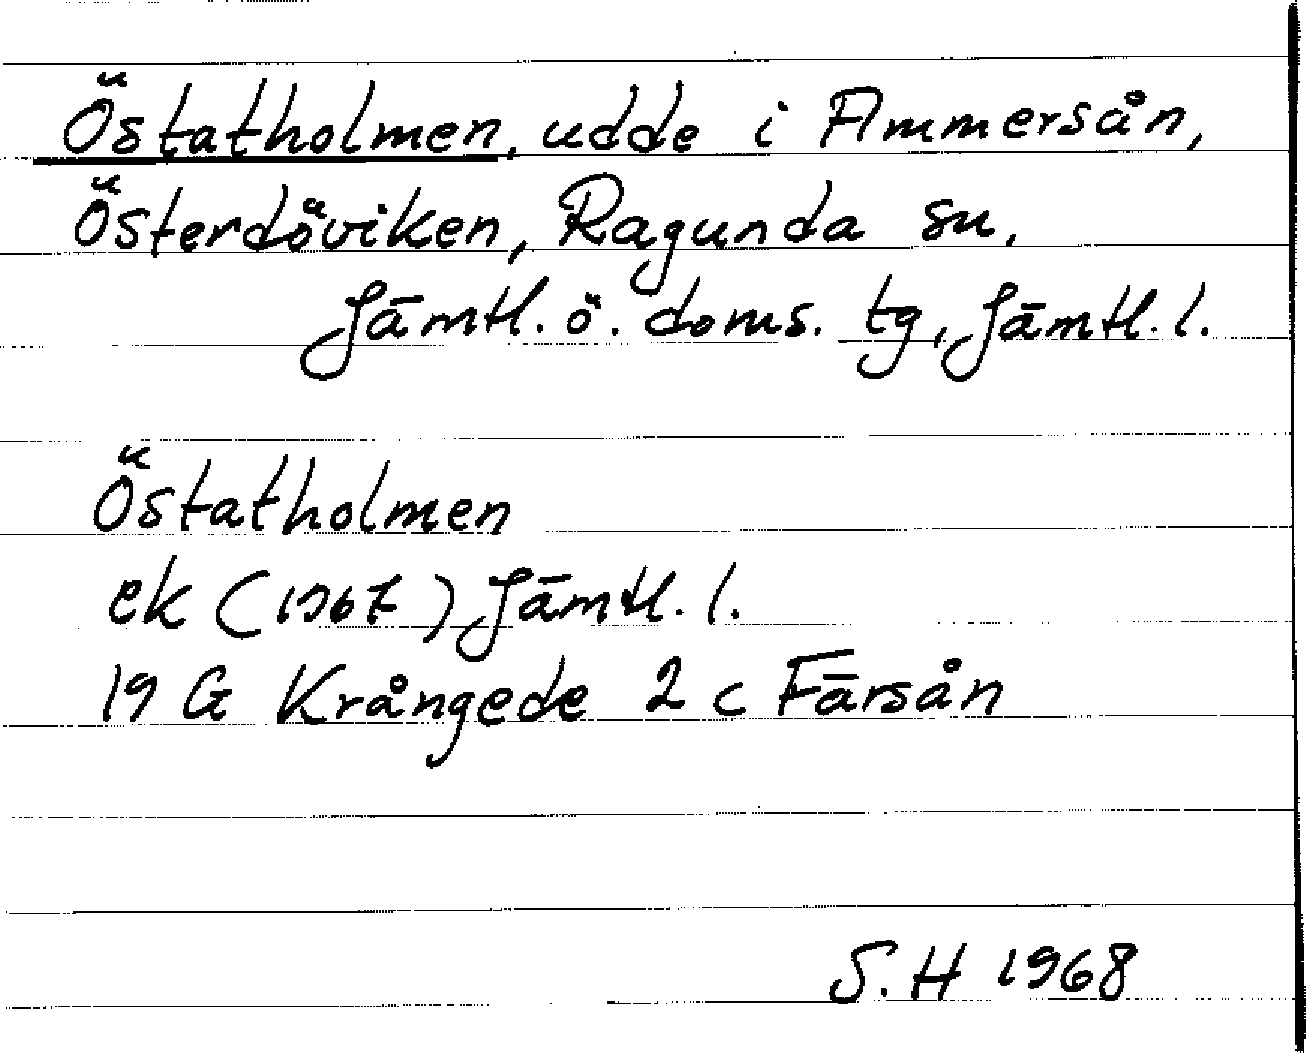 Östatholmen, udde i Ammersån,
Österdöviken, Ragunda sn,
Jämtl. ö. doms. tg, Jämtl. l.
Östatholmen
ek (1967) Jämtl. l.
19 G Krångede 2 c Färsån
S. H 1968